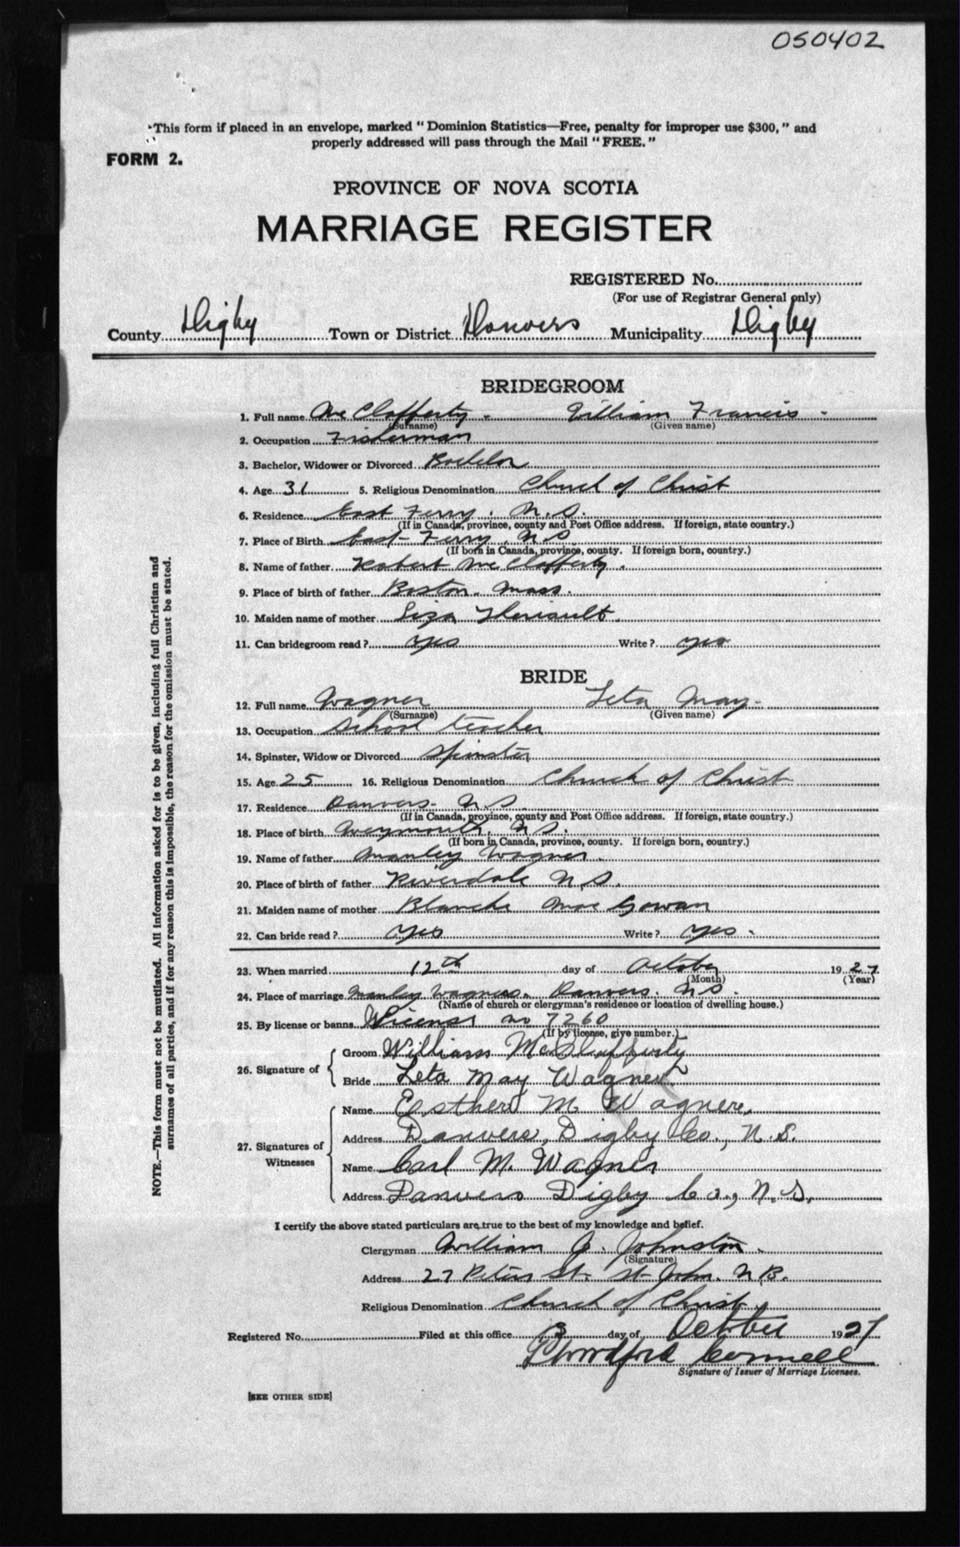 050402
"This form if placed in an envelope, marked "Dominion Statistics—Free, penalty for improper use $300," and
properly addressed will pass through the Mail "FREE."
FORM 2.
PROVINCE OF NOVA SCOTIA
MARRIAGE REGISTER
REGISTERED No.
(For use of Registrar General only)
County Digby Town or District Danvers Municipality Digby
BRIDEGROOM
1. Full name McClafferty - William Francis -
(Surname) (Given name)
2. Occupation Fisherman
3. Bachelor, Widower or Divorced Bachelor
4. Age 31 5. Religious Denomination Church of Christ
6. Residence East Ferry. N.S.
(If in Canada, province, county and Post Office address. If foreign, state country.)
7. Place of Birth East Ferry N.S.
(If born in Canada, province, county. If foreign born, country.)
8. Name of father Robert McClafferty.
9. Place of birth of father Boston. Mass.
10. Maiden name of mother Liza Theriault.
11. Can bridegroom read? yes Write? yes
BRIDE
12. Full name Wagner Leta May-
(Surname) (Given name)
13. Occupation School teacher
14. Spinster, Widow or Divorced Spinster
15. Age 25 16. Religious Denomination Church of Christ
17. Residence Danvers- N.S.
(If in Canada, province, county and Post Office address. If foreign, state country.)
18. Place of birth Weymouth, N.S.
(If born in Canada, province, county. If foreign born, country.)
19. Name of father Manley Wagner.
20. Place of birth of father Riverdale N.S.
21. Maiden name of mother Blanche MacGowan
22. Can bride read? yes Write? yes.
23. When married 12th day of October 1927
(Month) (Year)
24. Place of marriage Manley Wagners. Danvers. N.S.
(Name of church or clergyman's residence or location of dwelling house.)
25. By license or banns License no 7260
(If by license, give number.)
26. Signature of
Groom William McClafferty
Bride Leta May Wagner
27. Signatures of Witnesses
Name Esther M Wagner
Address Danvers, Digby Co., N.S.
Name Carl M. Wagner
Address Danvers Digby Co., N.S.
I certify the above stated particulars are true to the best of my knowledge and belief.
Clergyman William G. Johnston.
(Signature)
Address 27 Peters St. St. John. N.B.
Religious Denomination Church of Christ
Registered No. Filed at this office day of October 1927
Connell
Signature of Issuer of Marriage Licenses.
[SEE OTHER SIDE]
NOTE.—This form must not be mutilated. All information asked for is to be given, including full Christian and
surnames of all parties, and if for any reason this is impossible, the reason for the omission must be stated.